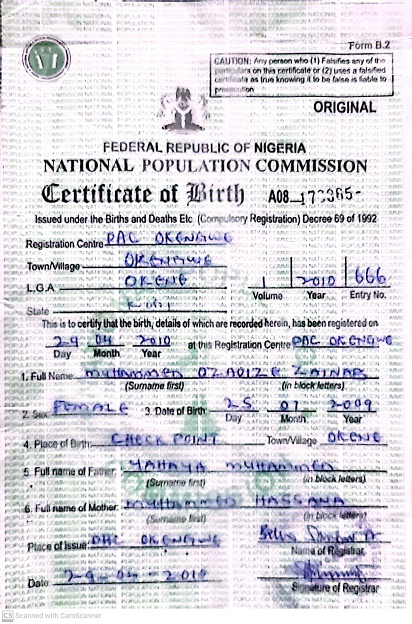 Form B.2
CAUTION: Any person who (1) Falsifies any of the
particulars on this certificate or (2) uses a falsified
certificate as true knowing it to be false is liable to
prosecution
ORIGINAL
FEDERAL REPUBLIC OF NIGERIA
NATIONAL POPULATION COMMISSION
Certificate of Birth A08
Issued under the Births and Deaths Etc (Compulsory Registration) Decree 69 of 1992
Registration Centre PAC OKENGWE
Town/Village OKENGWE
L.G.A OKENE 1 2010 666
Volume Year Entry No.
State KOGI
This is to certify that the birth, details of which are recorded herein, has been registered on
29 04 2010 at this Registration Centre PAC OKENGWE
Day Month Year
1. Full Name MUHAMMED OZAOIZE ZAINAB
(Surname first) (in block letters)
2. Sex FEMALE 3. Date of Birth: 25 07 2009
Day Month Year
4. Place of Birth CHECK POINT Town/Village OKENE
5. Full name of Father YAHAYA MUHAMMED
(Surname first) (in block letters)
6. Full name of Mother MUHAMMED HASSANA
(Surname first) (in block letters)
Place of issue PAC OKENGWE Bello
Name of Registrar
Date 29-04-2010
Signature of Registrar
CS Scanned with CamScanner